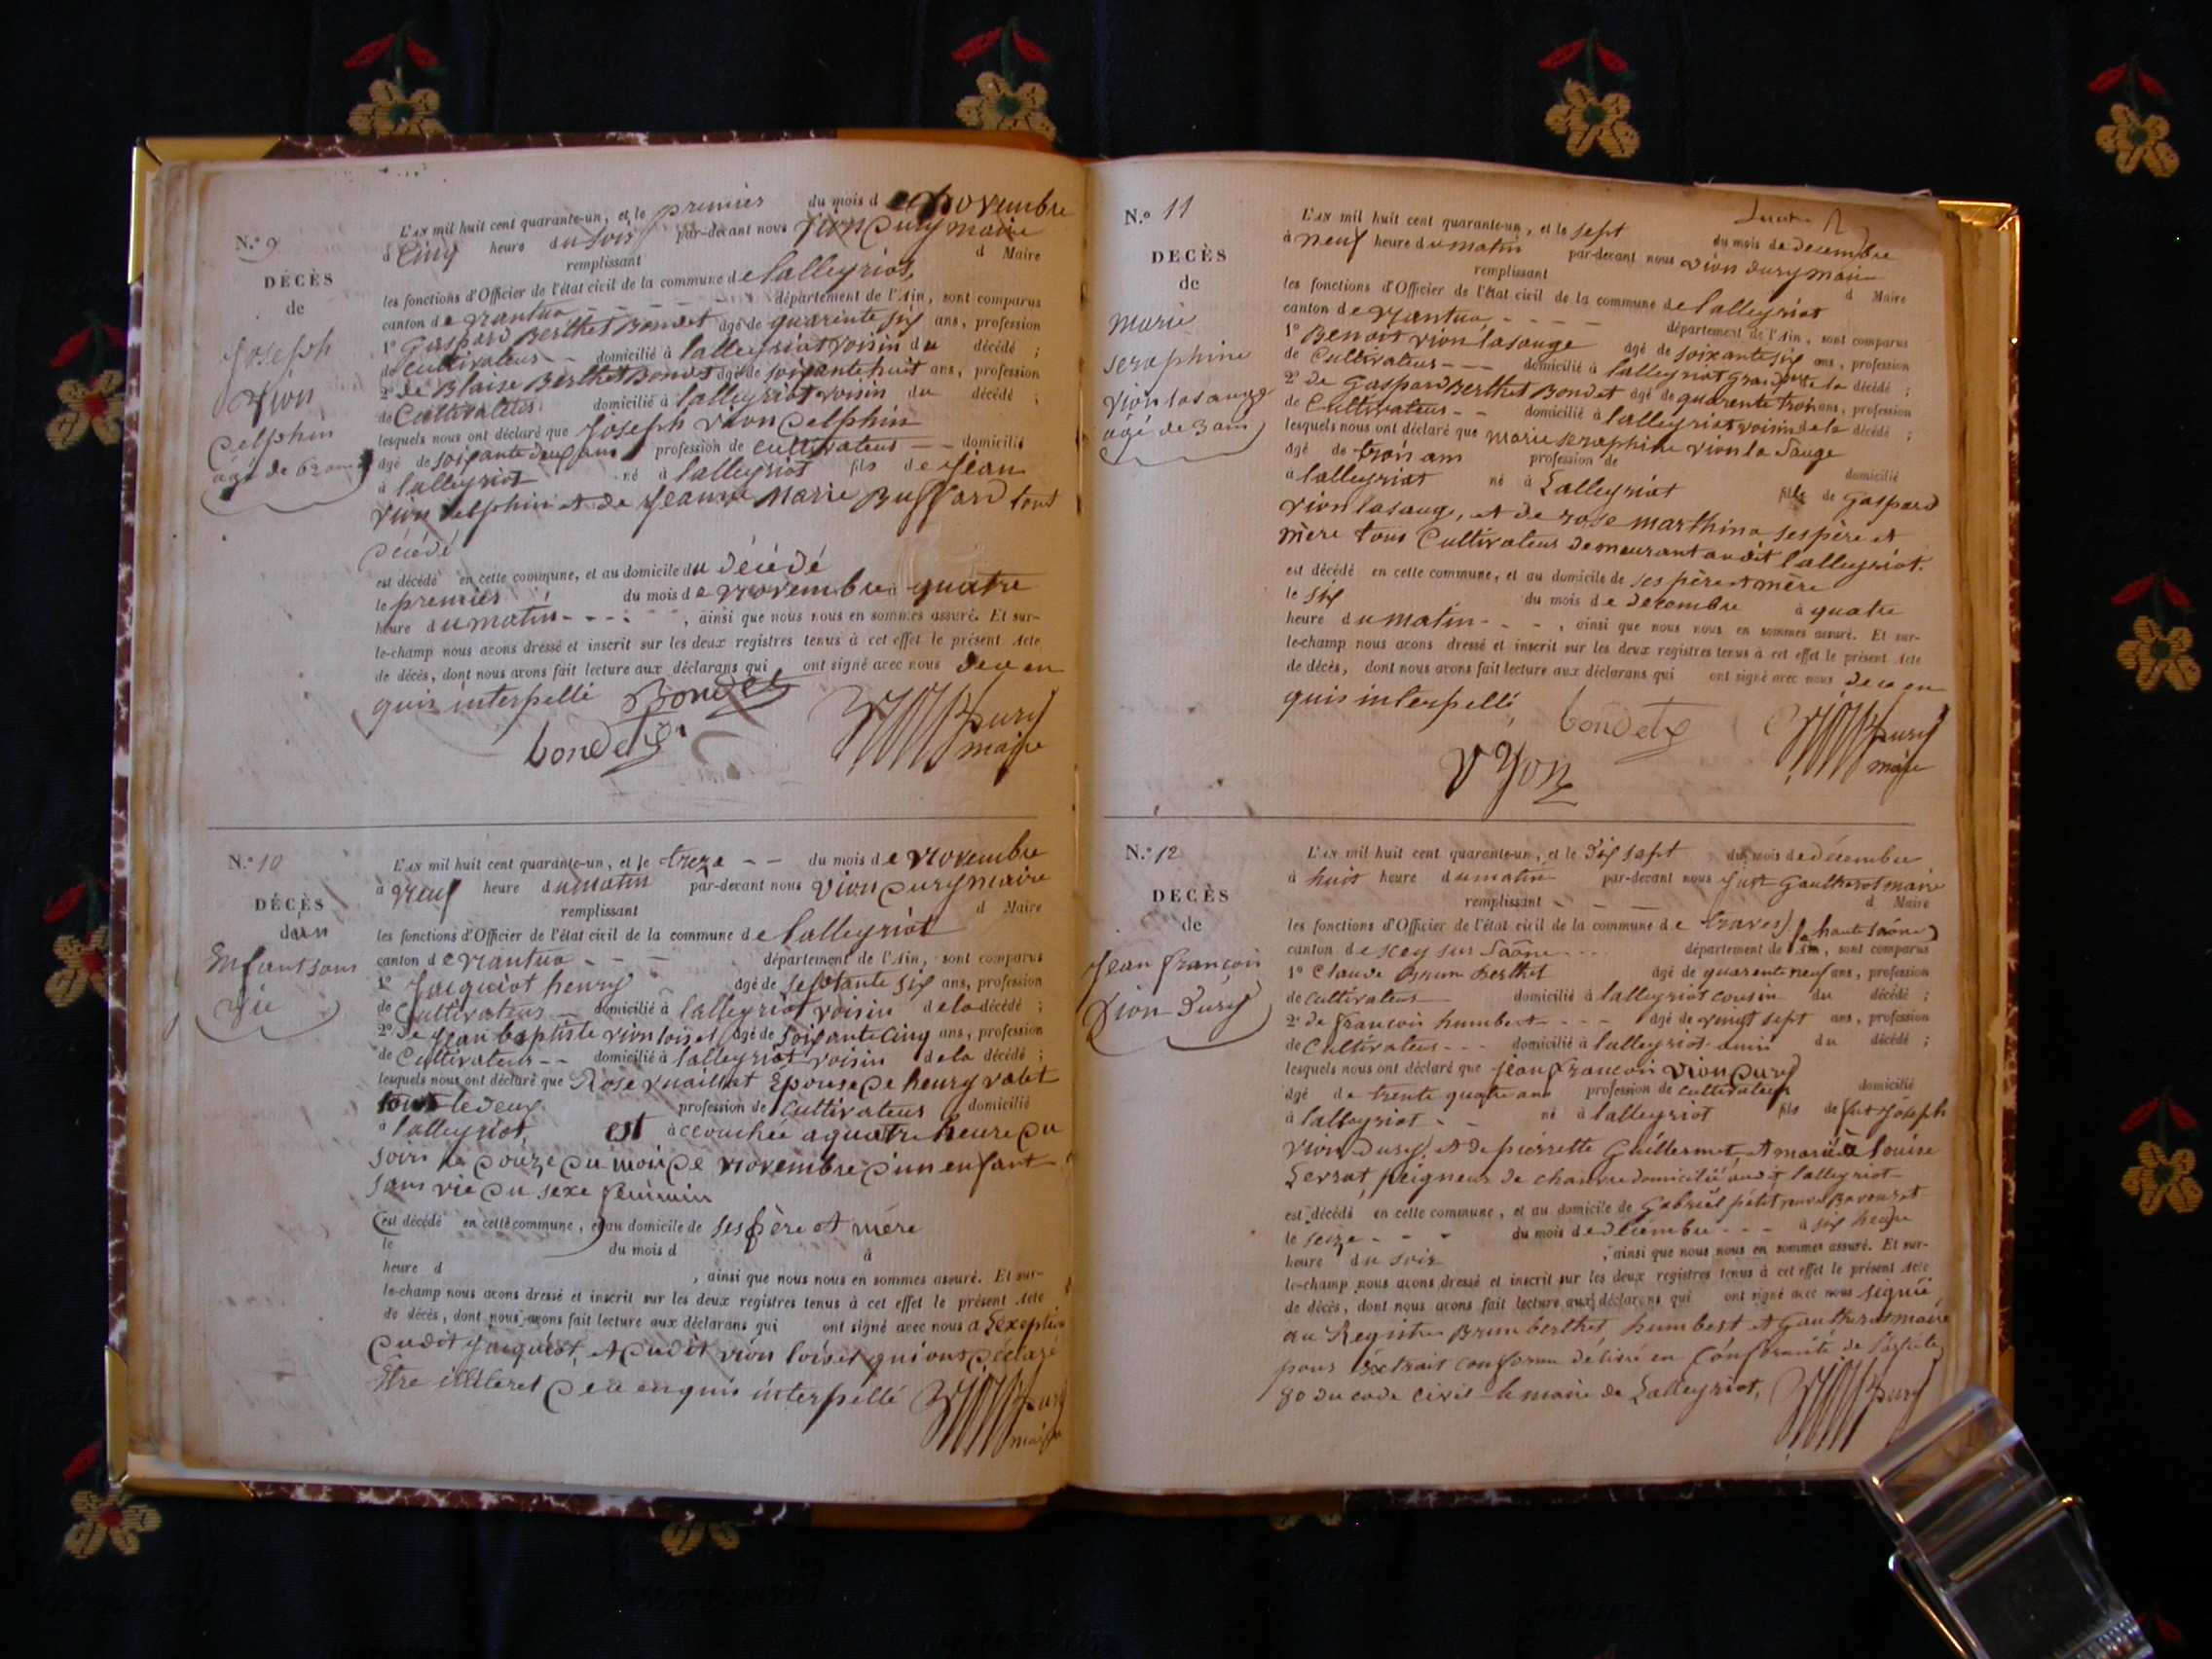 N.º 9
DÉCÈS
de
Joseph
Vion
Delphin
agé de 62 ans
L'AN mil huit cent quarante-un, et le premier du mois de novembre
à Cinq heure du soir par-devant nous Vion Dury maire
remplissant d Maire
les fonctions d'Officier de l'état civil de la commune de lalleyriat
canton de nantua département de l'Ain, sont comparus
1º Gaspard Berthet Bondet âgé de quarente six ans, profession
de cultivateur domicilié à lalleyriat voisin du décédé ;
2º de Blaise Berthet Bondet âgé de soixante huit ans, profession
de Cultivateur domicilié à lalleyriat voisin du décédé ;
lesquels nous ont déclaré que Joseph Vion Delphin
âgé de soixante deux ans profession de cultivateur domicilié
à lalleyriat né à lalleyriat fils de Jean
Vion Delphin et de Jeanne Marie Buffard tout
décédé
est décédé en cette commune, et au domicile du décédé
le premier du mois de novembre quatre
heure du matin , ainsi que nous nous en sommes assuré. Et sur-
le-champ nous avons dressé et inscrit sur les deux registres tenus à cet effet le présent Acte
de décès, dont nous avons fait lecture aux déclarans qui ont signé avec nous de ce en
quis interpellé Bondet
bondet Dury
maire
N.º 10
DÉCÈS
dun
Enfant sans
vie
L'AN mil huit cent quarante-un, et le treze du mois de novembre
à neuf heure du matin par-devant nous Vion Dury maire
remplissant d Maire
les fonctions d'Officier de l'état civil de la commune de lalleyriat
canton de nantua département de l'Ain, sont comparus
1º Jacquiot henry âgé de septante six ans, profession
de Cultivateur domicilié à lalleyriat voisin de la décédé ;
2º de Jean baptiste vion loisel âgé de soixante cinq ans, profession
de Cultivateur domicilié à lalleyriat voisin de la décédé ;
lesquels nous ont déclaré que Rose Épouse de henry
tout le deux profession de cultivateur domicilié
à lalleyriat, est accouchée a quatre heure du
soir le douze du mois de novembre d'un enfant
sans vie du sexe feminin
(est décédé en cette commune, et) au domicile de ses père et mère
le du mois d à
heure d , ainsi que nous nous en sommes assuré. Et sur-
le-champ nous avons dressé et inscrit sur les deux registres tenus à cet effet le présent Acte
de décès, dont nous avons fait lecture aux déclarans qui ont signé avec nous a Lexeption
dudit Jacquiot, et dudit vion loisel qui ont déclaré
Être illiteret de ce enquis interpellé Dury
maire
N.º 11
DECÈS
de
Marie
seraphine
Vion lasauge
agé de 3 ans
L'AN mil huit cent quarante-un, et le sept du mois de decembre
à neuf heure du matin par-devant nous Vion Dury maire
remplissant d Maire
les fonctions d'Officier de l'état civil de la commune de lalleyriat
canton de nantua département de l'Ain, sont comparus
1º Benoit vion lasauge âgé de soixante six ans, profession
de Cultivateur domicilié à lalleyriat grand père de la décédé ;
2º de Gaspard Berthet Bondet âgé de quarente trois ans, profession
de Cultivateur domicilié à lalleyriat voisin de la décédé ;
lesquels nous ont déclaré que marie seraphine vion la Sauge
âgé de trois ans profession de domicilié
à lalleyriat né à Lalleyriat fille de Gaspard
Vion lasauge, et de rose marthina ses père et
mère tous Cultivateur demeurant audit lalleyriat.
est décédé en cette commune, et au domicile de ses père et mère
le six du mois de decembre à quatre
heure du matin , ainsi que nous nous en sommes assuré. Et sur-
le-champ nous avons dressé et inscrit sur les deux registres tenus à cet effet le présent Acte
de décès, dont nous avons fait lecture aux déclarans qui ont signé avec nous de ce en
quis interpellé bondet Dury
VYon maire
N.º 12
DECÈS
de
Jean françois
Vion Dury
L'AN mil huit cent quarante-un, et le dix sept du mois de décembre
à huit heure du matin par-devant nous Just Gautherot maire
remplissant d Maire
les fonctions d'Officier de l'état civil de la commune de traves
canton de scey sur Saône département de la haute Saône, sont comparus
1º Claude Brun Berthet âgé de quarente neuf ans, profession
de cultivateur domicilié à lalleyriat cousin du décédé ;
2º de françois humbert âgé de vingt sept ans, profession
de Cultivateur domicilié à lalleyriat amis du décédé ;
lesquels nous ont déclaré que jean françois Vion Dury
âgé de trente quatre ans profession de cultivateur domicilié
à lalleyriat né à lalleyriat fils de Joseph
Vion Dury, et de pierrette Guillermet, et marié a louise
Serrat, peigneur de chanvre domicilié audit lalleyriat
est décédé en cette commune, et au domicile de Gabriël petit
le seize du mois de décembre à six heure
heure du soir , ainsi que nous nous en sommes assuré. Et sur-
le-champ nous avons dressé et inscrit sur les deux registres tenus à cet effet le présent Acte
de décès, dont nous avons fait lecture aux déclarans qui ont signé avec nous signié
au Registre Brun berthet, humbert et Gautherot maire
pour Extrait conforme delivré en Conformité de l'article
80 du code civil le maire de Lalleyriat, Dury